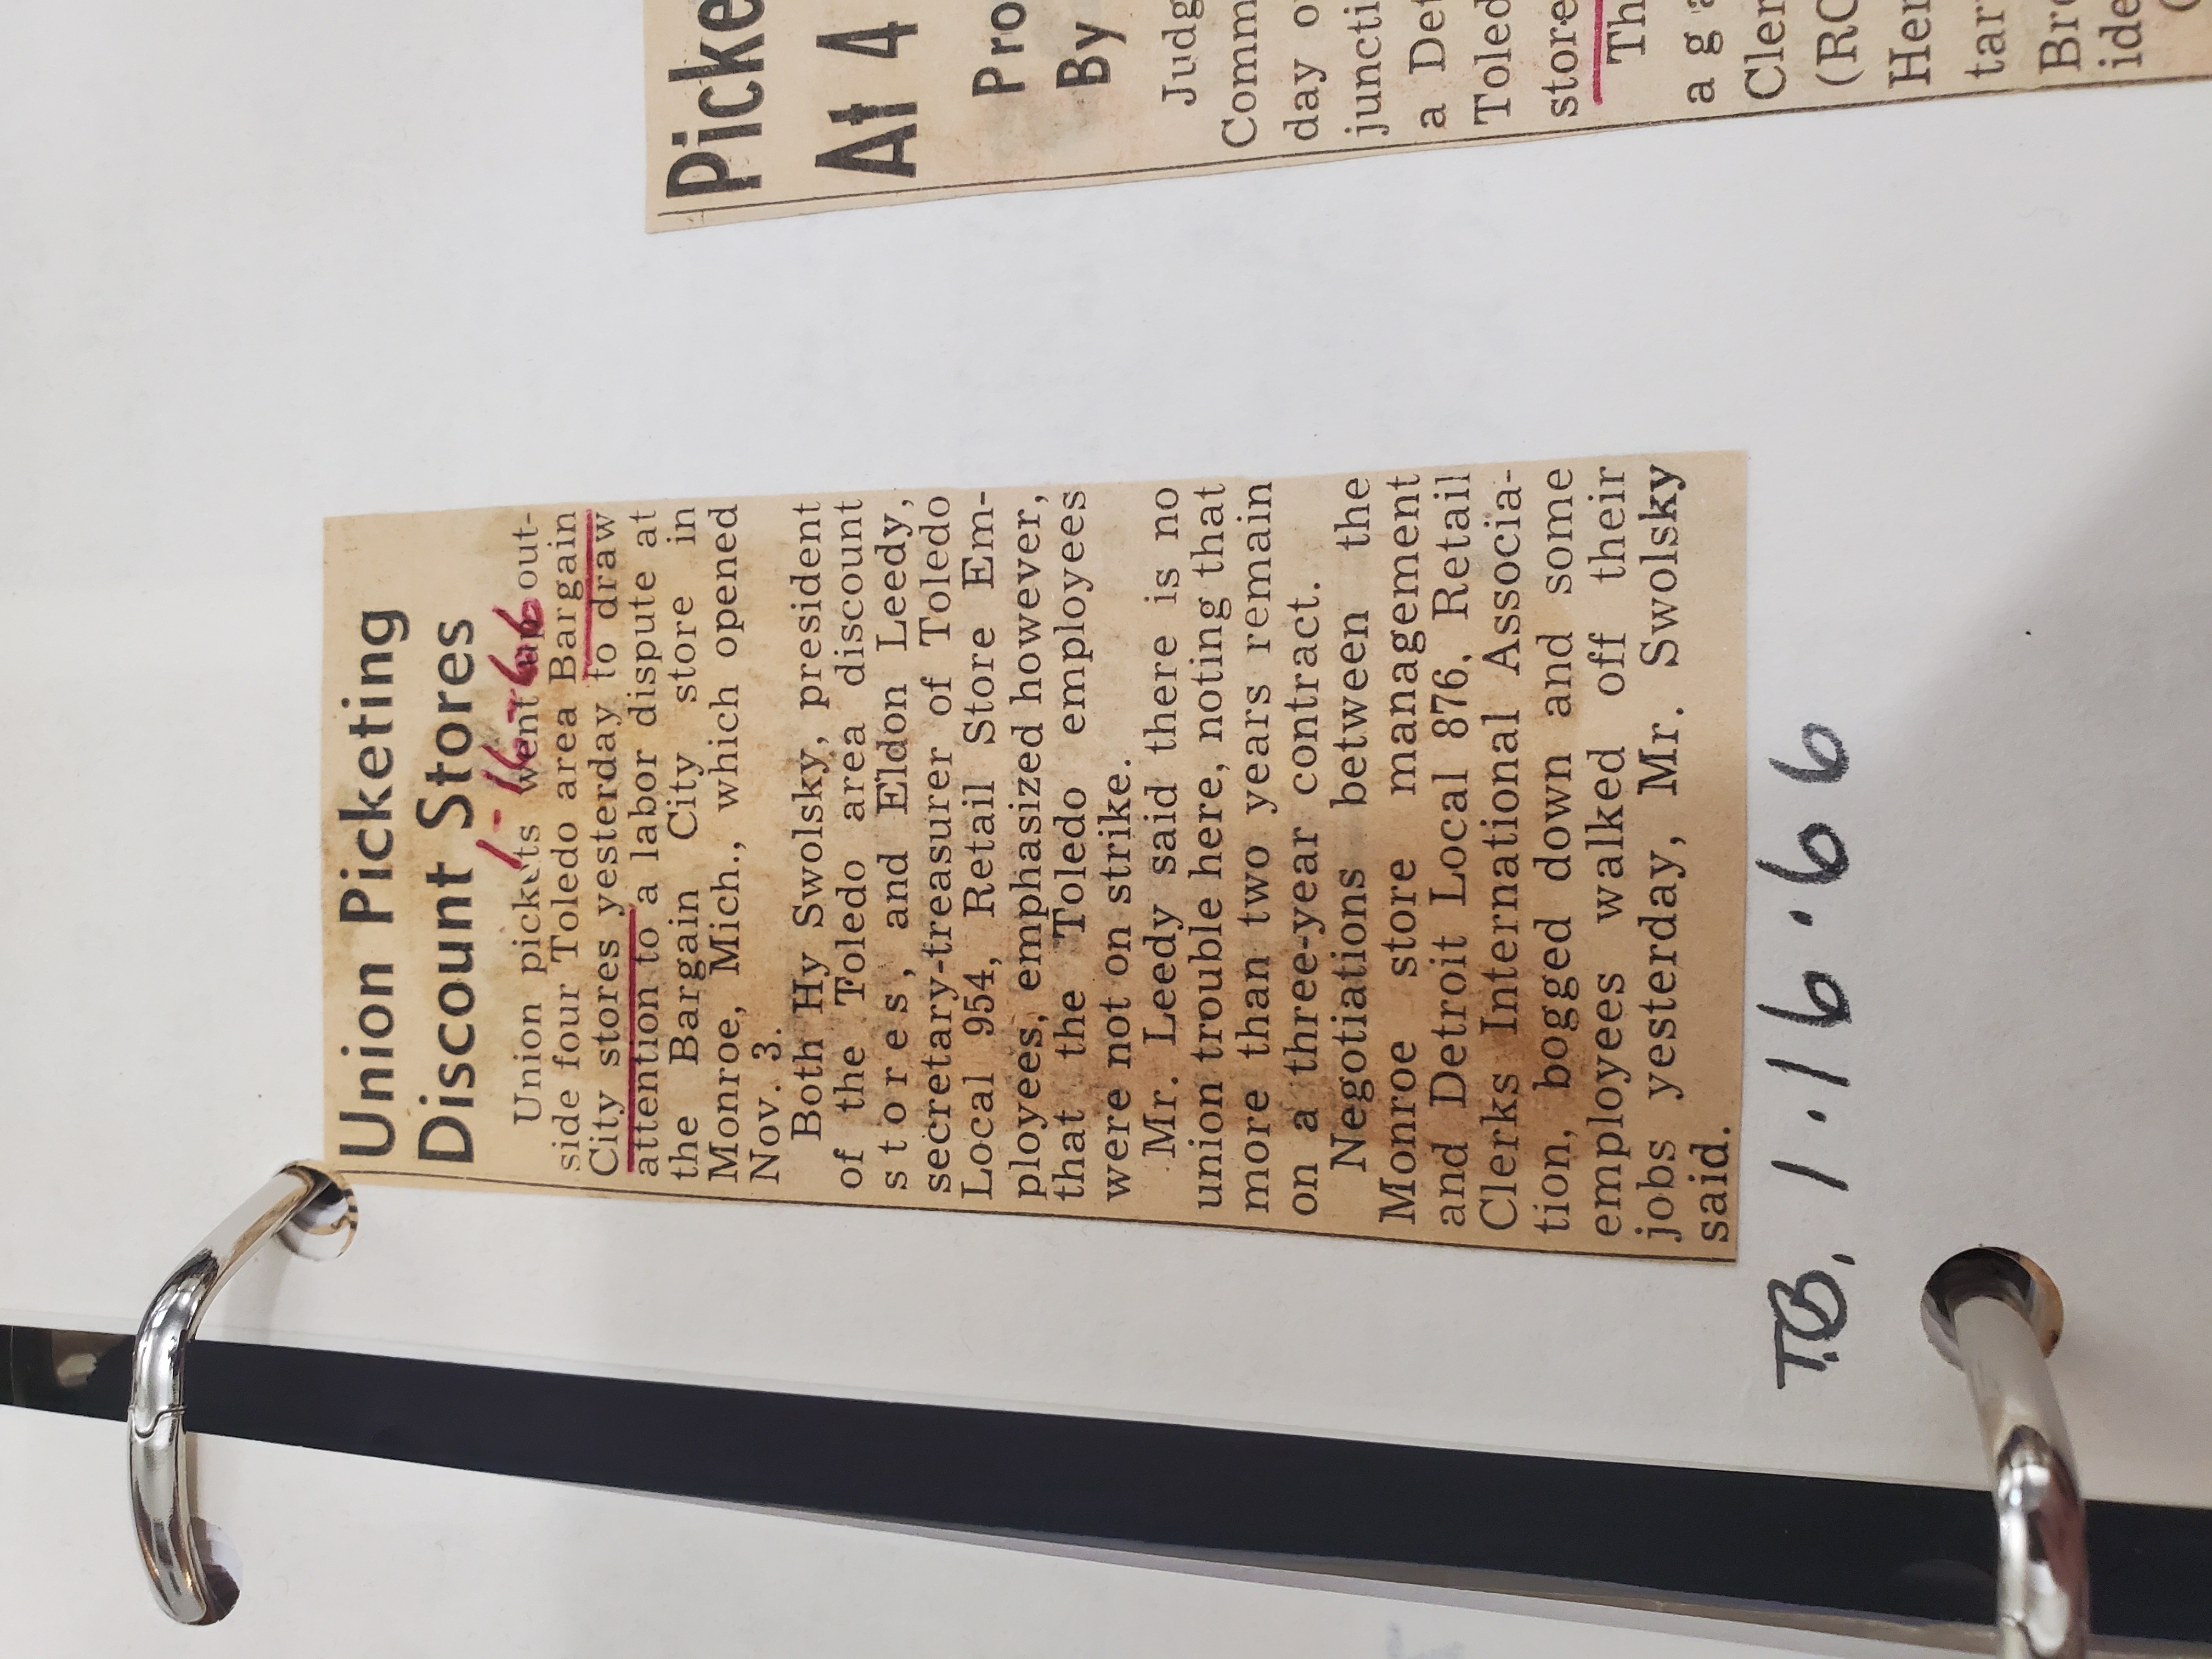 Union Picketing
Discount Stores
1-16-66
Union pickets went up out-
side four Toledo area Bargain
City stores yesterday to draw
attention to a labor dispute at
the Bargain City store in
Monroe, Mich., which opened
Nov. 3.
Both Hy Swolsky, president
of the Toledo area discount
stores, and Eldon Leedy,
secretary-treasurer of Toledo
Local 954, Retail Store Em-
ployees, emphasized however,
that the Toledo employees
were not on strike.
Mr. Leedy said there is no
union trouble here, noting that
more than two years remain
on a three-year contract.
Negotiations between the
Monroe store management
and Detroit Local 876, Retail
Clerks International Associa-
tion, bogged down and some
employees walked off their
jobs yesterday, Mr. Swolsky
said.
T.B. 1·16·66
Picke
At 4
Pro
By
Judg
Comm
day o
juncti
a Det
Toled
store
Th
aga
Cler
(RC
Her
tar
Bro
ide